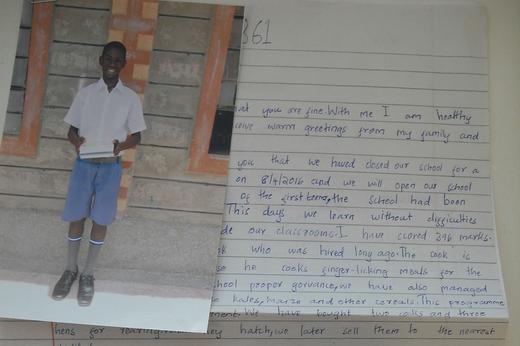 361
at you are fine. With me I am healthy
warm greetings from my family and
you that we haved closed our school for a
on 8/4/2016 and we will open our school
of the first term, the school had been
This days we learn without difficulties
de our classrooms. I have scored 396 marks.
who was hired long ago. The cook is
so he cooks finger-licking meals for the
hool proper gorvance, we have also managed
kales, maize and other cereals. This programme
ment. We have bought two calks and three
hens for rearing. ey hatch, we later sell them to the nearest